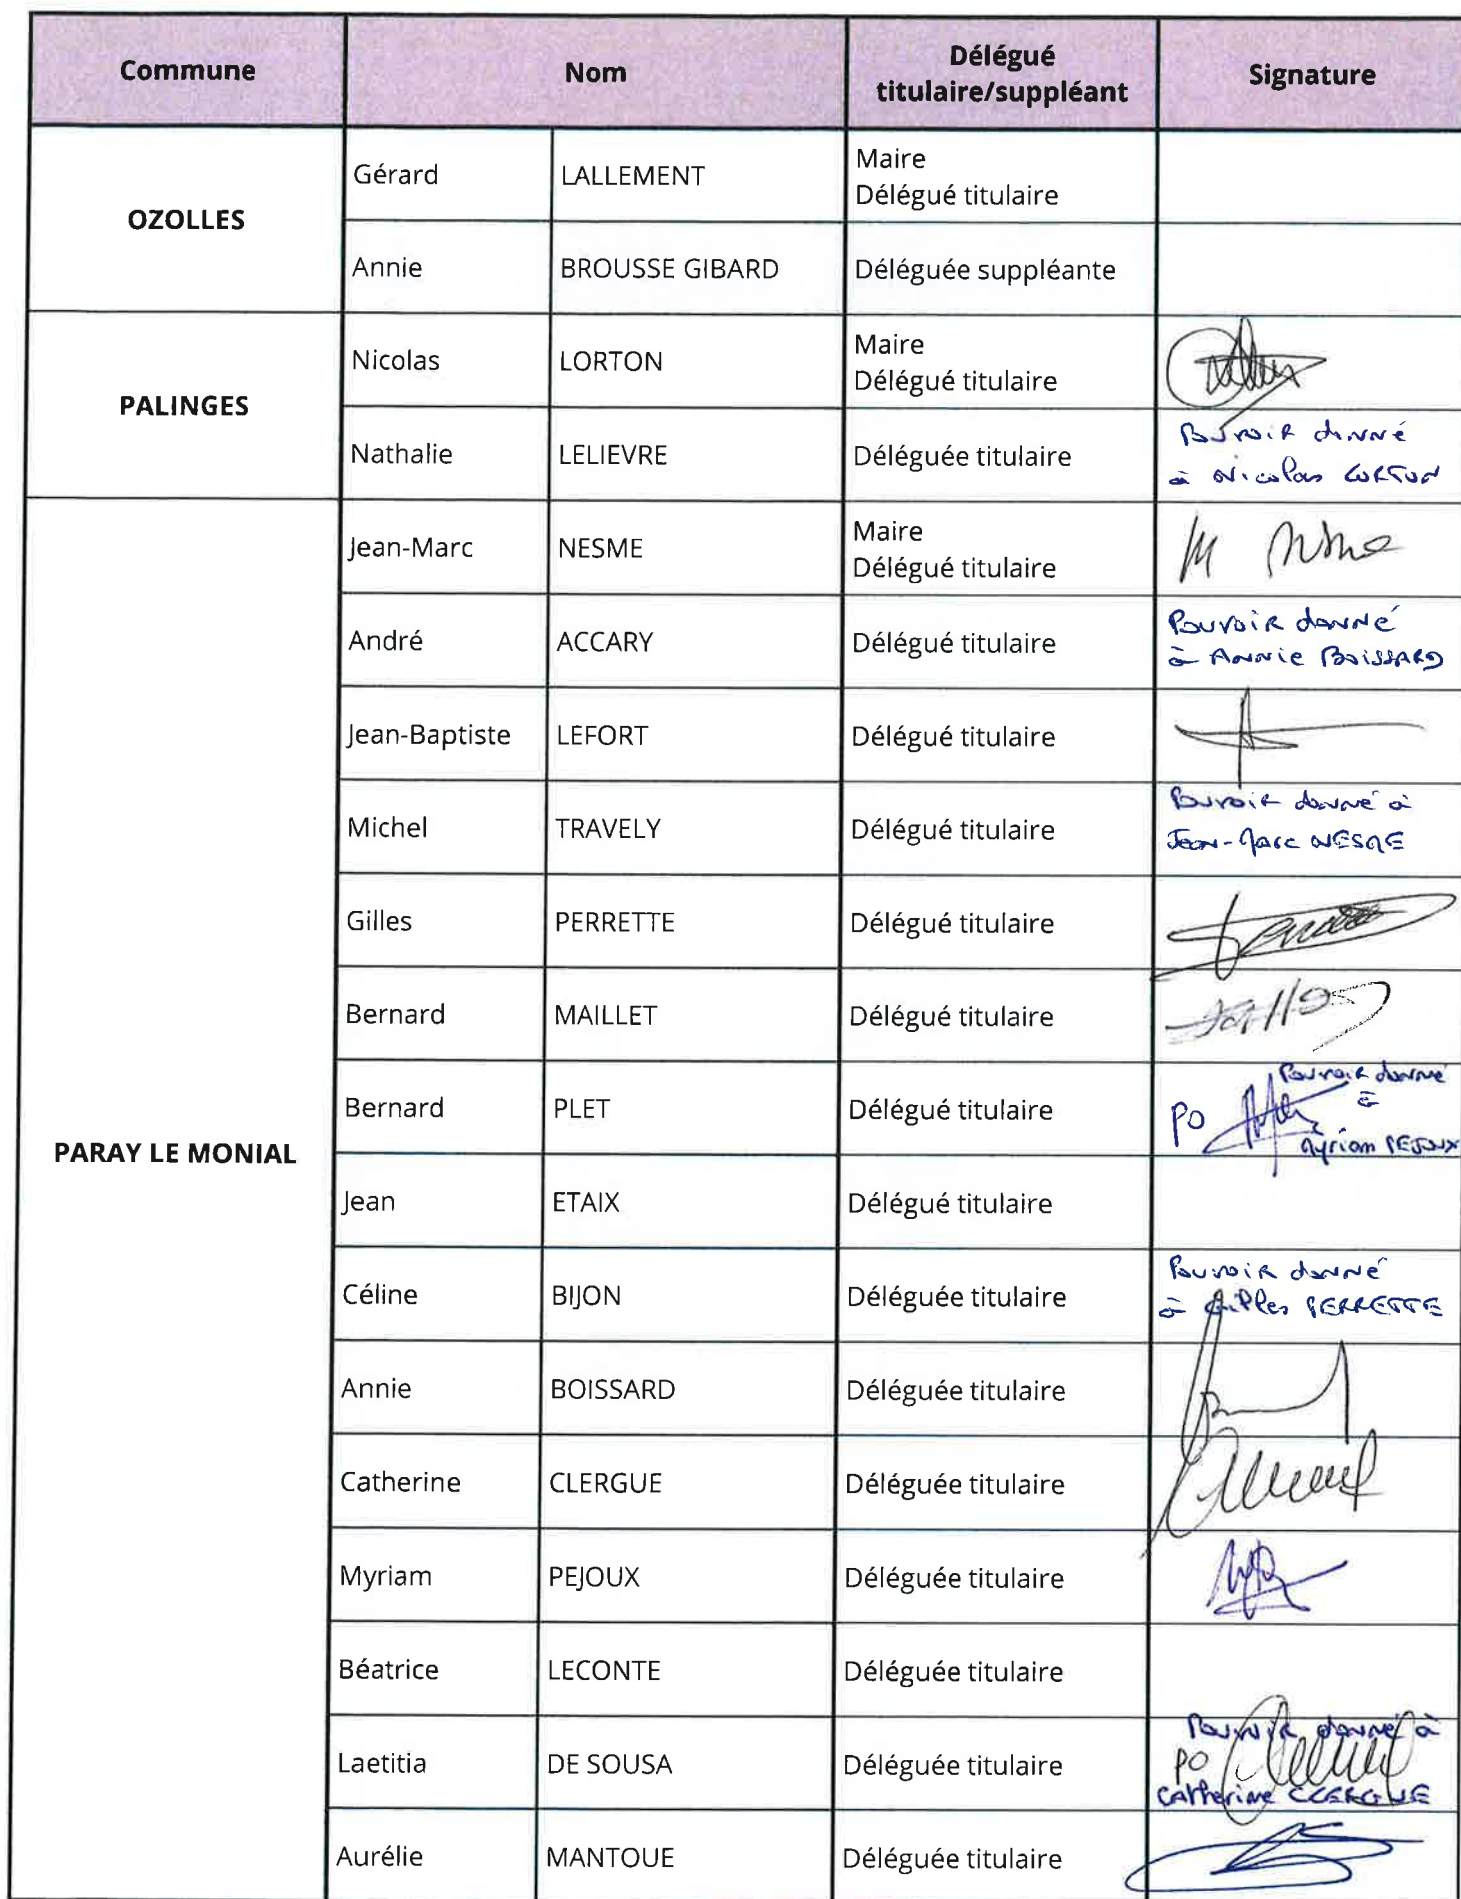 Commune
Nom
Délégué
titulaire/suppléant
Signature
OZOLLES
Gérard
LALLEMENT
Maire
Délégué titulaire
Annie
BROUSSE GIBARD
Déléguée suppléante
PALINGES
Nicolas
LORTON
Maire
Délégué titulaire
Nathalie
LELIEVRE
Déléguée titulaire
Pouvoir donné
à Nicolas LORTON
PARAY LE MONIAL
Jean-Marc
NESME
Maire
Délégué titulaire
André
ACCARY
Délégué titulaire
Pouvoir donné
à Annie BOISSARD
Jean-Baptiste
LEFORT
Délégué titulaire
Michel
TRAVELY
Délégué titulaire
Pouvoir donné à
Jean-Marc NESME
Gilles
PERRETTE
Délégué titulaire
Bernard
MAILLET
Délégué titulaire
Bernard
PLET
Délégué titulaire
Pouvoir donné
PO
à
Myriam PEJOUX
Jean
ETAIX
Délégué titulaire
Céline
BIJON
Déléguée titulaire
Pouvoir donné
à Gilles PERRETTE
Annie
BOISSARD
Déléguée titulaire
Catherine
CLERGUE
Déléguée titulaire
Myriam
PEJOUX
Déléguée titulaire
Béatrice
LECONTE
Déléguée titulaire
Laetitia
DE SOUSA
Déléguée titulaire
Pouvoir donné à
PO
Catherine CLERGUE
Aurélie
MANTOUE
Déléguée titulaire